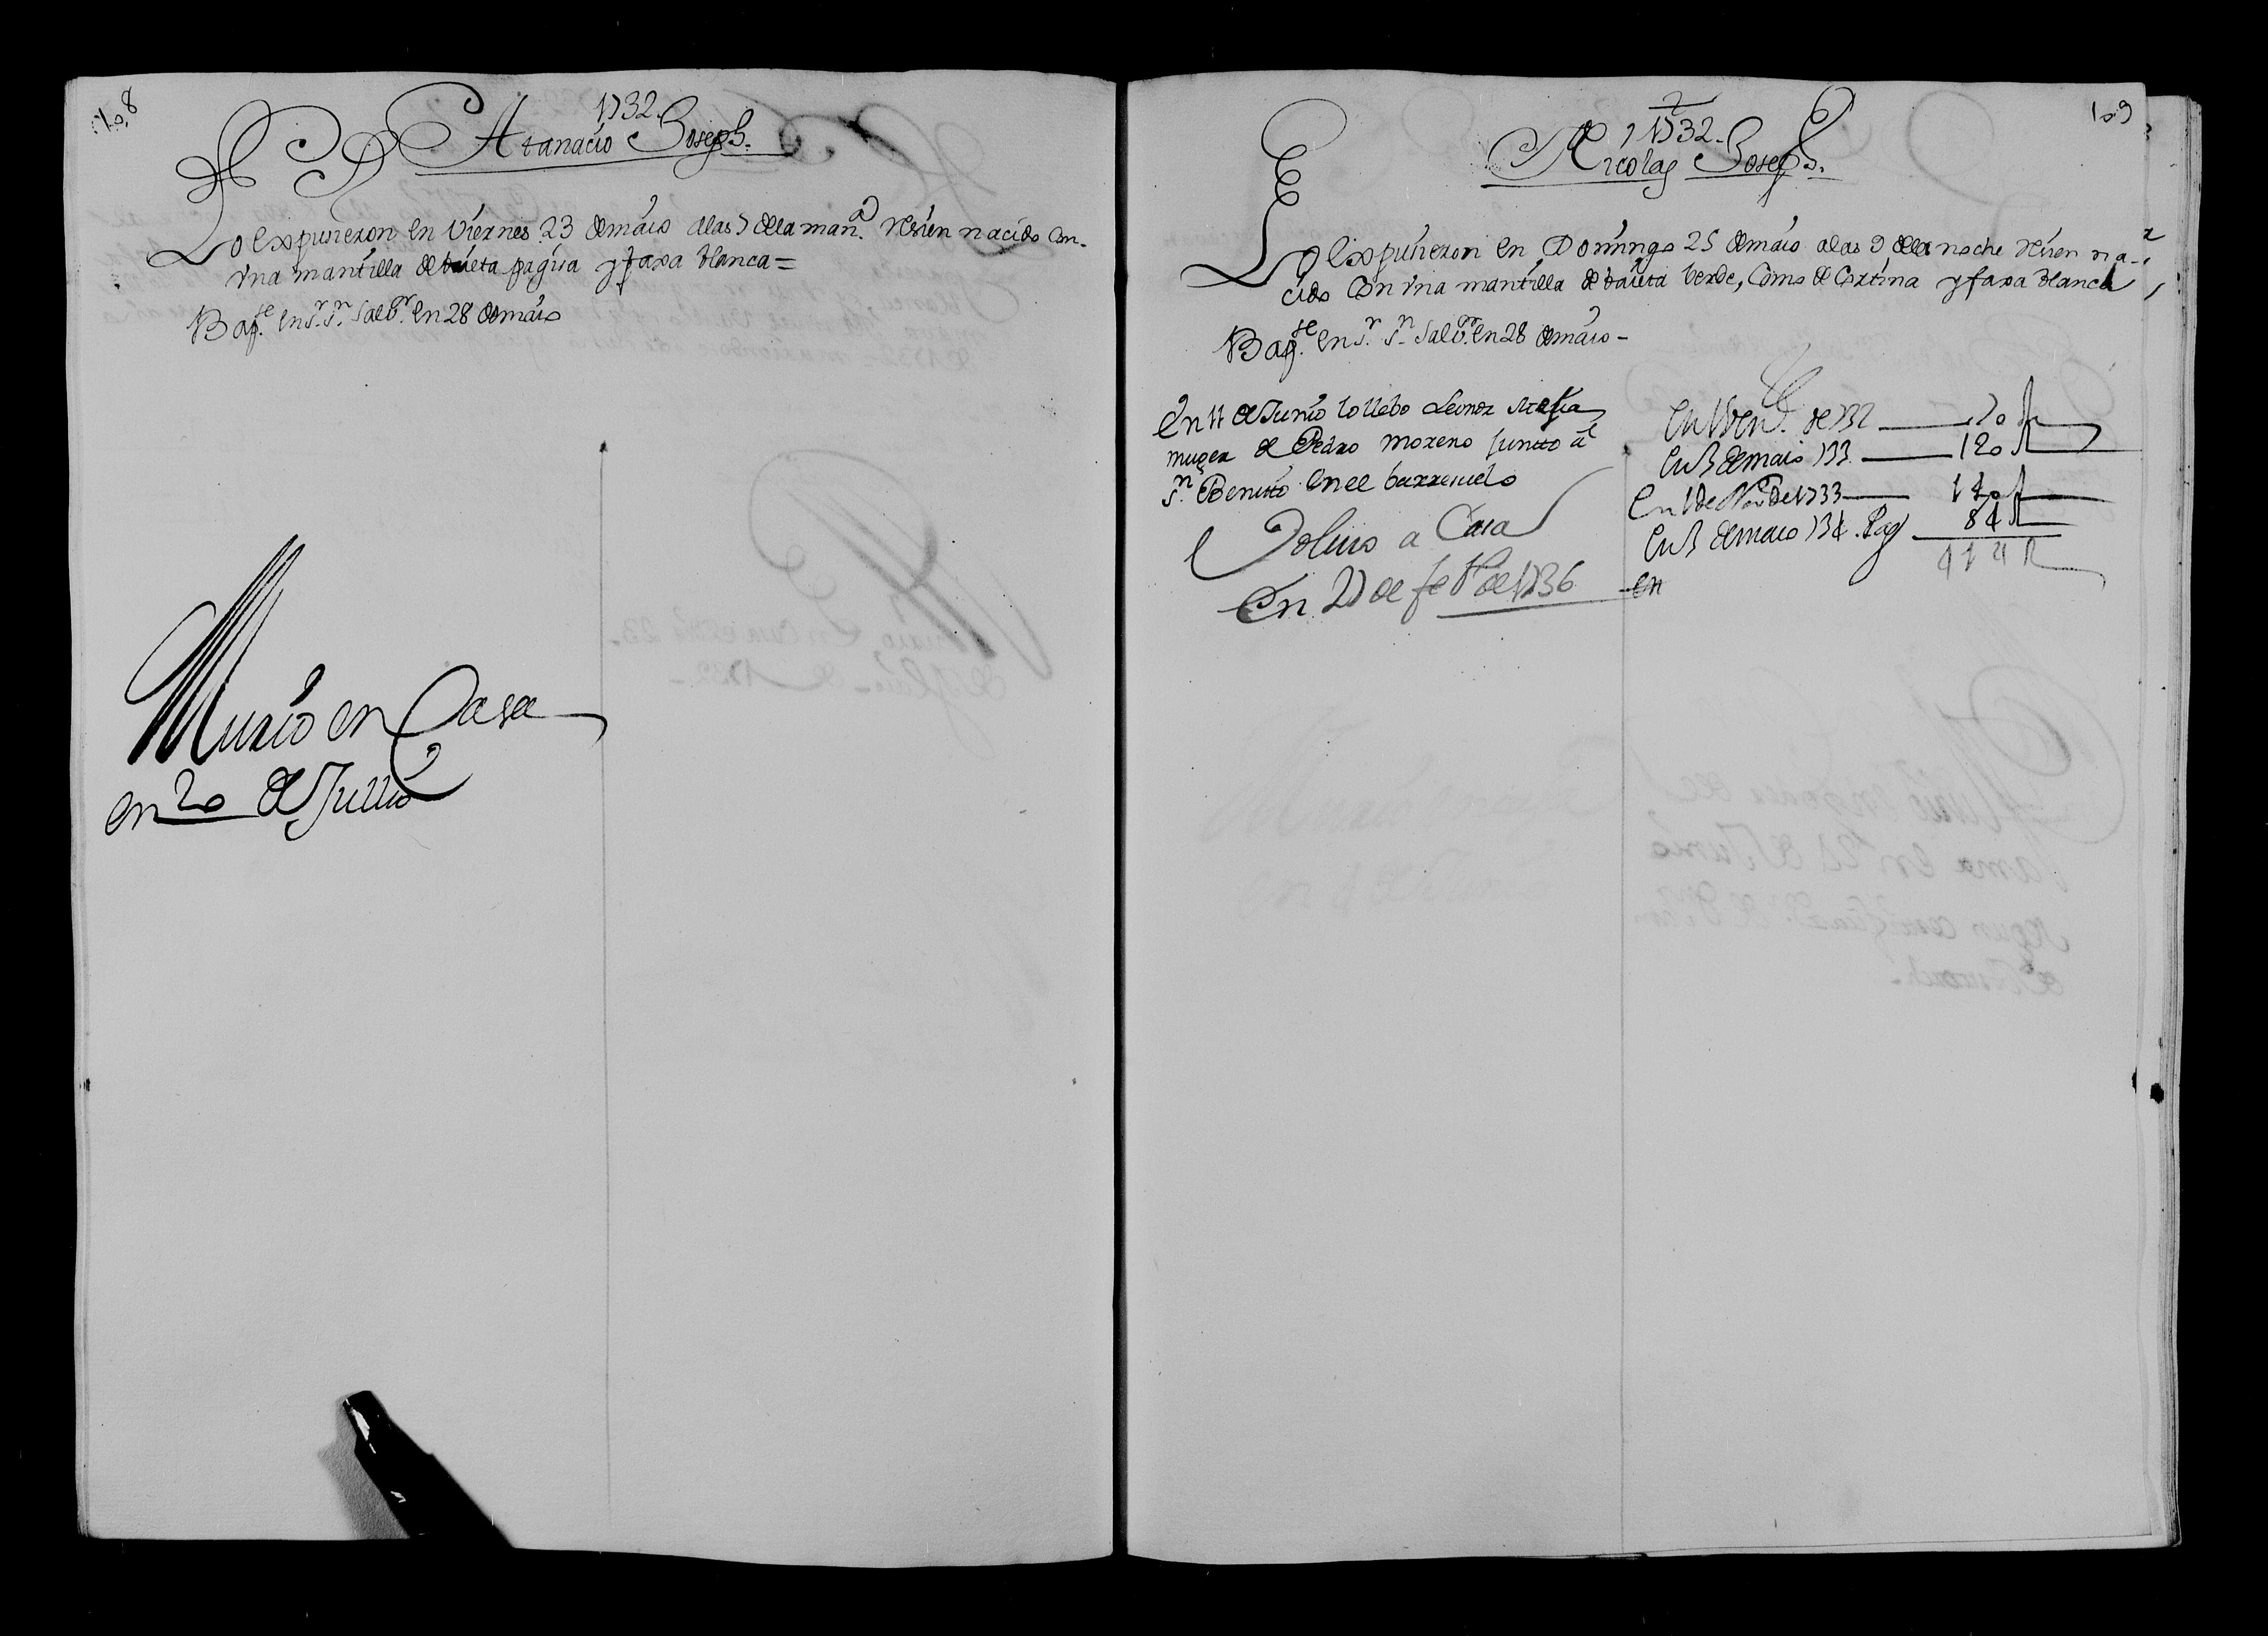 108
1732.
Atanacio Joseph.
Lo Expusieron en Viernes 23 de maio a las 7 de la mañ.a resien nacido con
vna mantilla de baieta pagisa y faxa blanca=
Bap.se en s.r s.n Salb.r en 28 de maio
Murio en Casa
en 20 de Jullio
109
1732.
Nicolas Joseph.
Lo Expusieron en Domingo 25 de maio a las 9 de la noche resien na-
cido con vna mantilla de baieta Verde, como de Cortina y faxa blanca
Bap.se en s.r s.n Salb.r en 28 de maio-
En 11 de Junio lo llebo Leonor
muger de Pedro Moreno juntto a
s.n Benitto en el barresuelo
Volvio a Casa
En 27 de feb.o de 1736
de 732
de maio 733 120
En 1 de Nov.e de 1733
de maio 734. Pag 84
en